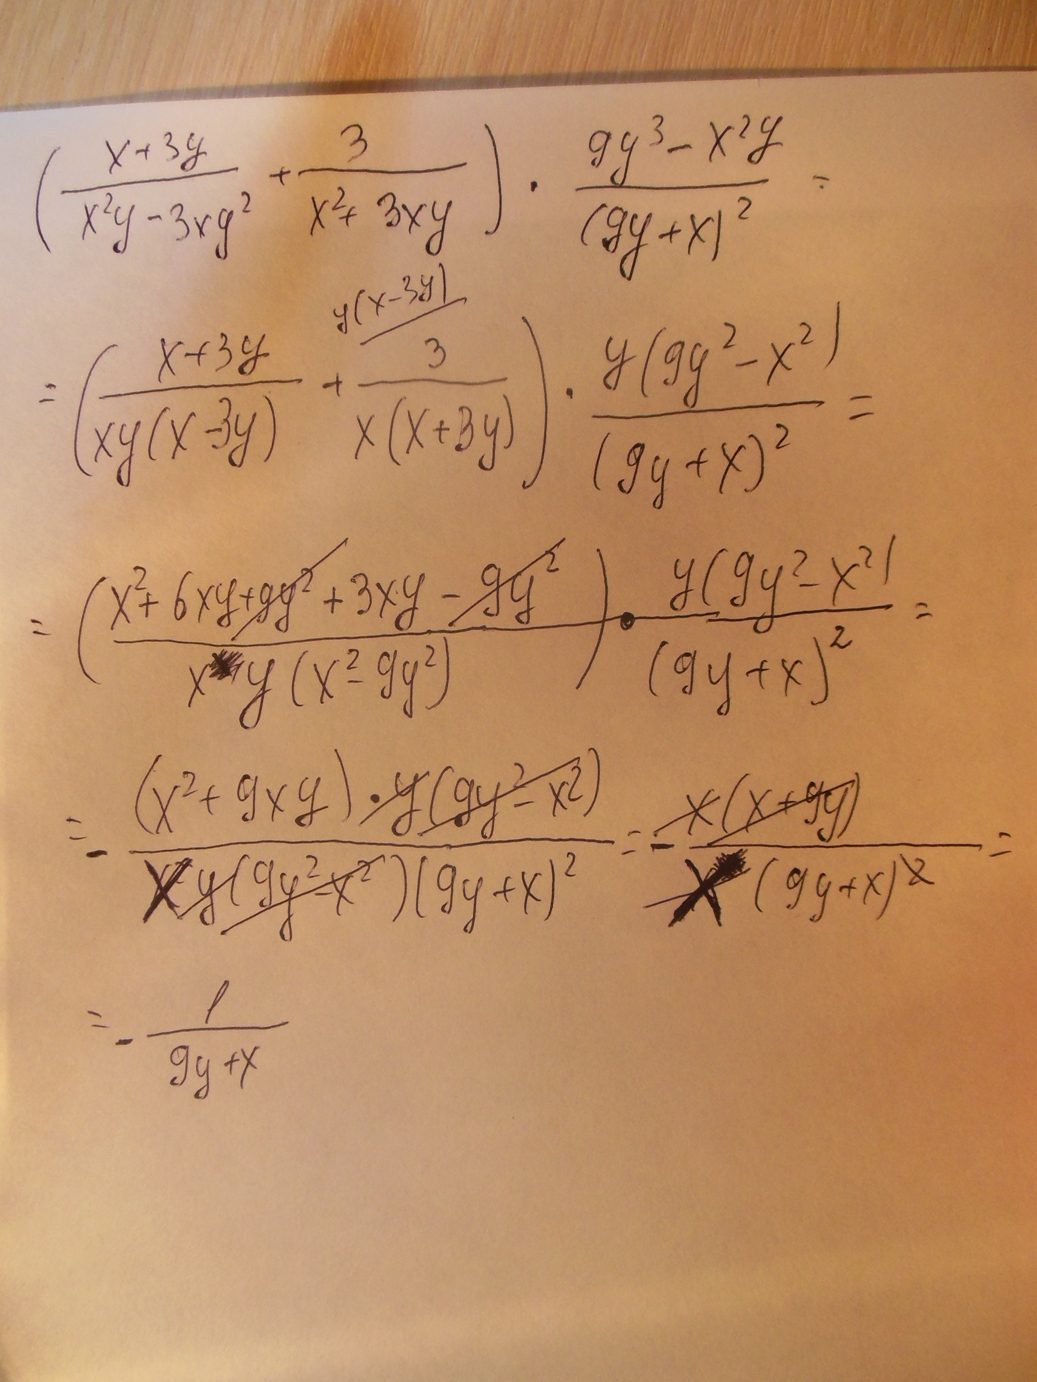 ( (x+3y)/(x²y−3xy²) + 3/(x²+3xy) ) · (9y³−x²y)/(9y+x)² =
y(x−3y)
= ( (x+3y)/(xy(x−3y)) + 3/(x(x+3y)) ) · y(9y²−x²)/(9y+x)² =
= ( (x²+6xy+9y²+3xy−9y²)/(xy(x²−9y²)) ) · y(9y²−x²)/(9y+x)² =
= − (x²+9xy)·y(9y²−x²)/(xy(9y²−x²)(9y+x)²) = − x(x+9y)/(x(9y+x)²) =
= − 1/(9y+x)